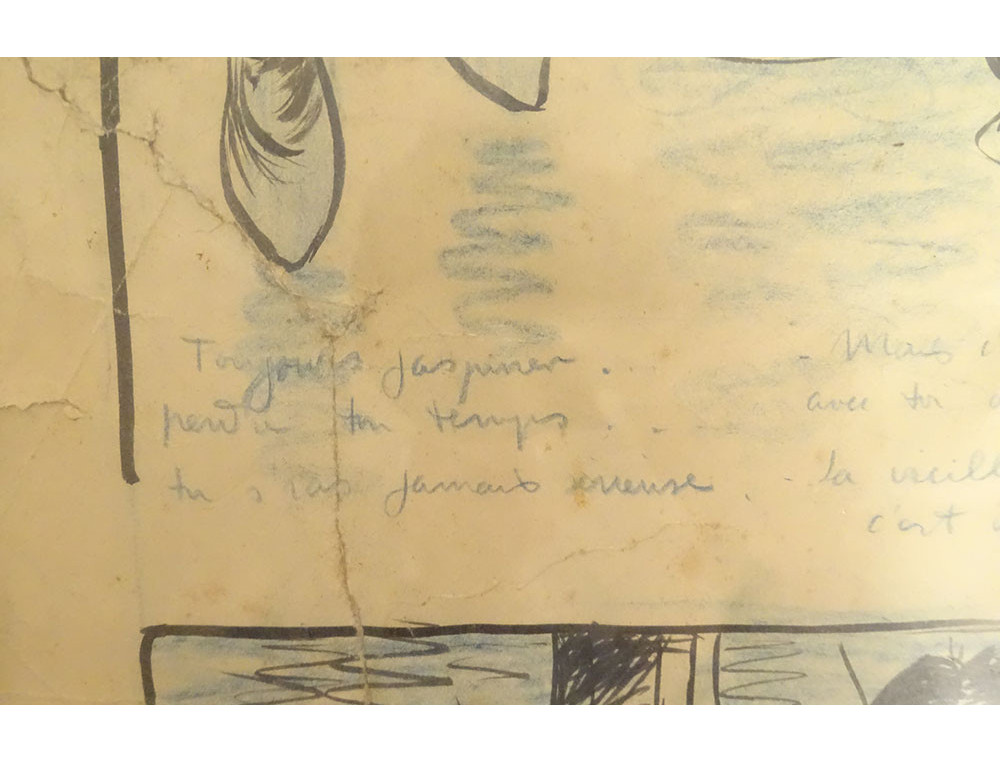 Toujours jaspiner ...
perdre ton temps ..
tu s'ras jamais
- Mais
avec toi
- la vieill
c'est